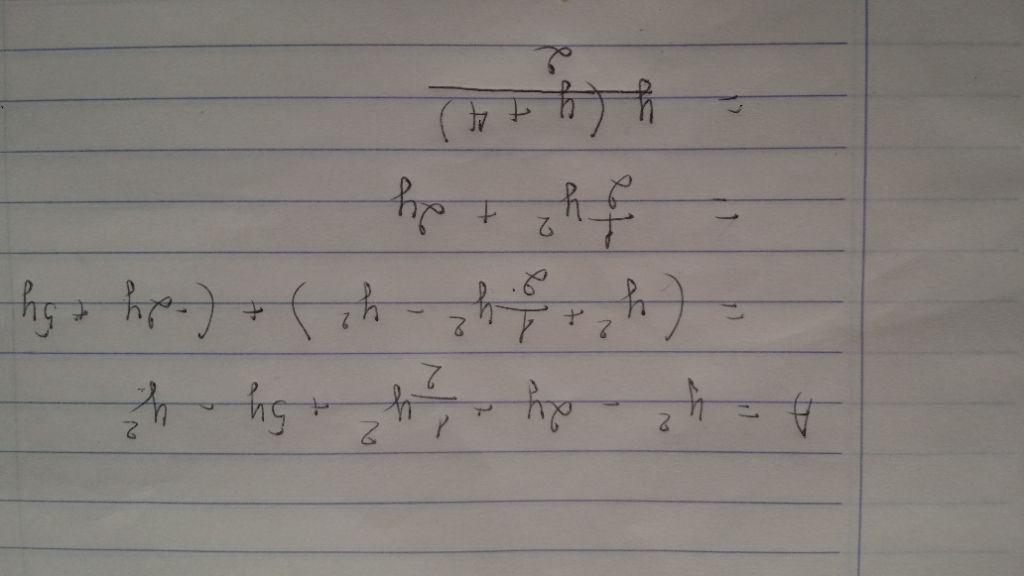 A = y² - 2y - 1/2 y² + 5y - y²
= (y² + 1/2 y² - y²) + (-2y + 5y
= 1/2 y² + 2y
= y(y + 4)/2